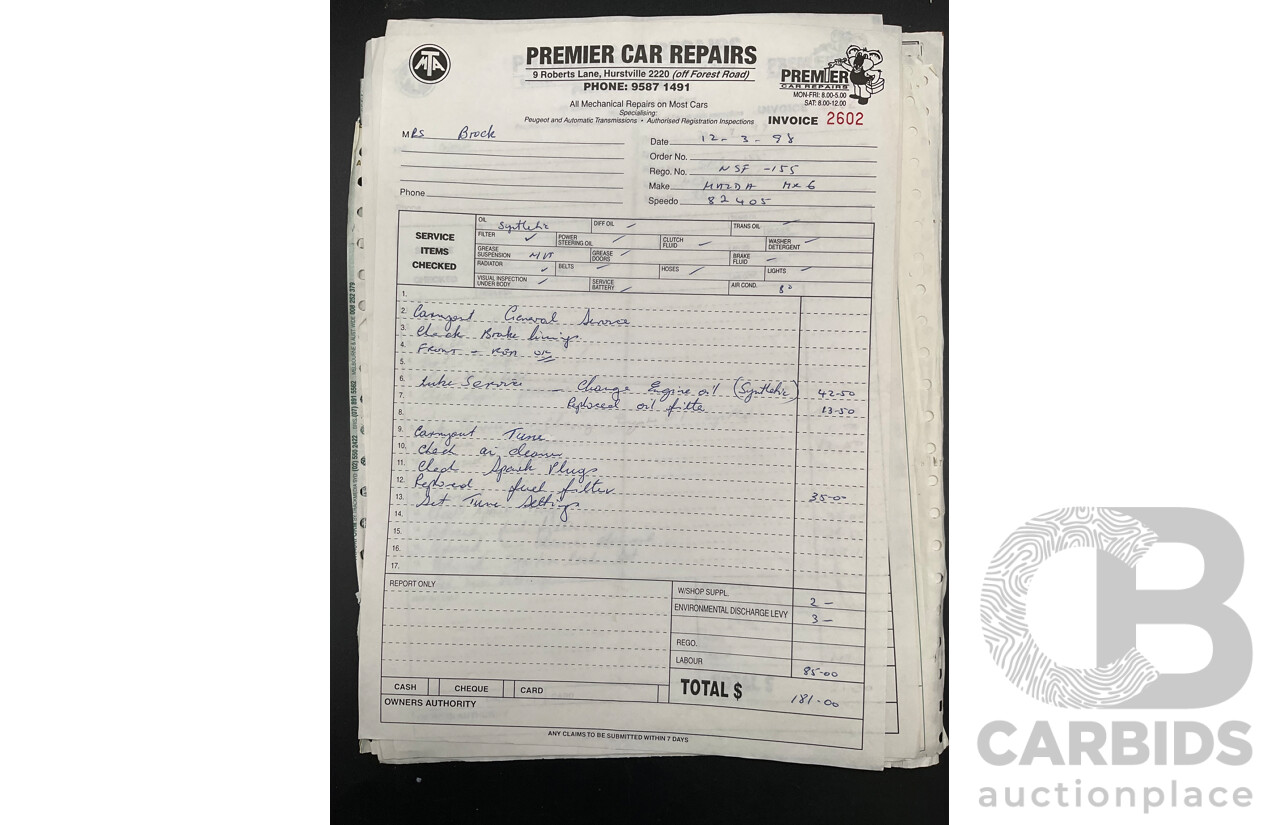 MTA
PREMIER CAR REPAIRS
9 Roberts Lane, Hurstville 2220 (off Forest Road)
PHONE: 9587 1491
All Mechanical Repairs on Most Cars
Specialising:
Peugeot and Automatic Transmissions • Authorised Registration Inspections
PREMIER
CAR REPAIRS
MON-FRI: 8.00-5.00
SAT: 8.00-12.00
INVOICE 2602
MRS Brock
Date 12-3-98
Order No.
Rego. No. NSF-155
Make MAZDA MX6
Phone
Speedo 82405
SERVICE ITEMS CHECKED
OIL Synthetic DIFF OIL TRANS OIL
FILTER ✓ POWER STEERING OIL CLUTCH FLUID WASHER DETERGENT
GREASE SUSPENSION GREASE DOORS BRAKE FLUID
RADIATOR ✓ BELTS HOSES LIGHTS
VISUAL INSPECTION UNDER BODY SERVICE BATTERY AIR COND. 8°
1.
2. Carryout General Service
3. Check Brake linings
4. FRONT - REAR OK
5.
6. Lube Service - Change Engine oil (Synthetic) 42-50
7. Replaced oil filter 13-50
8.
9. Carryout Tune
10. Check air cleaner
11. Check Spark Plugs
12. Replaced fuel filter 35-00
13. Set Tune Settings
14.
15.
16.
17.
REPORT ONLY
W/SHOP SUPPL. 2-
ENVIRONMENTAL DISCHARGE LEVY 3-
REGO.
LABOUR 85-00
CASH CHEQUE CARD
TOTAL $ 181-00
OWNERS AUTHORITY
ANY CLAIMS TO BE SUBMITTED WITHIN 7 DAYS
CB
CARBIDS
auctionplace